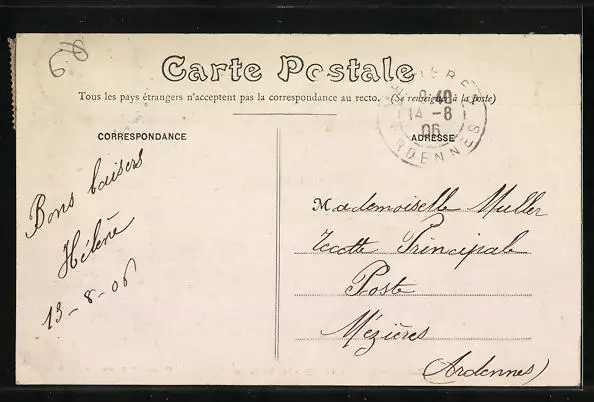 60
Carte Postale
Tous les pays étrangers n'acceptent pas la correspondance au recto. (Se renseigner à la poste)
CORRESPONDANCE
ADRESSE
MÉZIÈRES
8-40
14-8
06
ARDENNES
Bons baisers
Hélène
13-8-06
Mademoiselle Muller
Principale
Poste
Mézières
Ardennes)